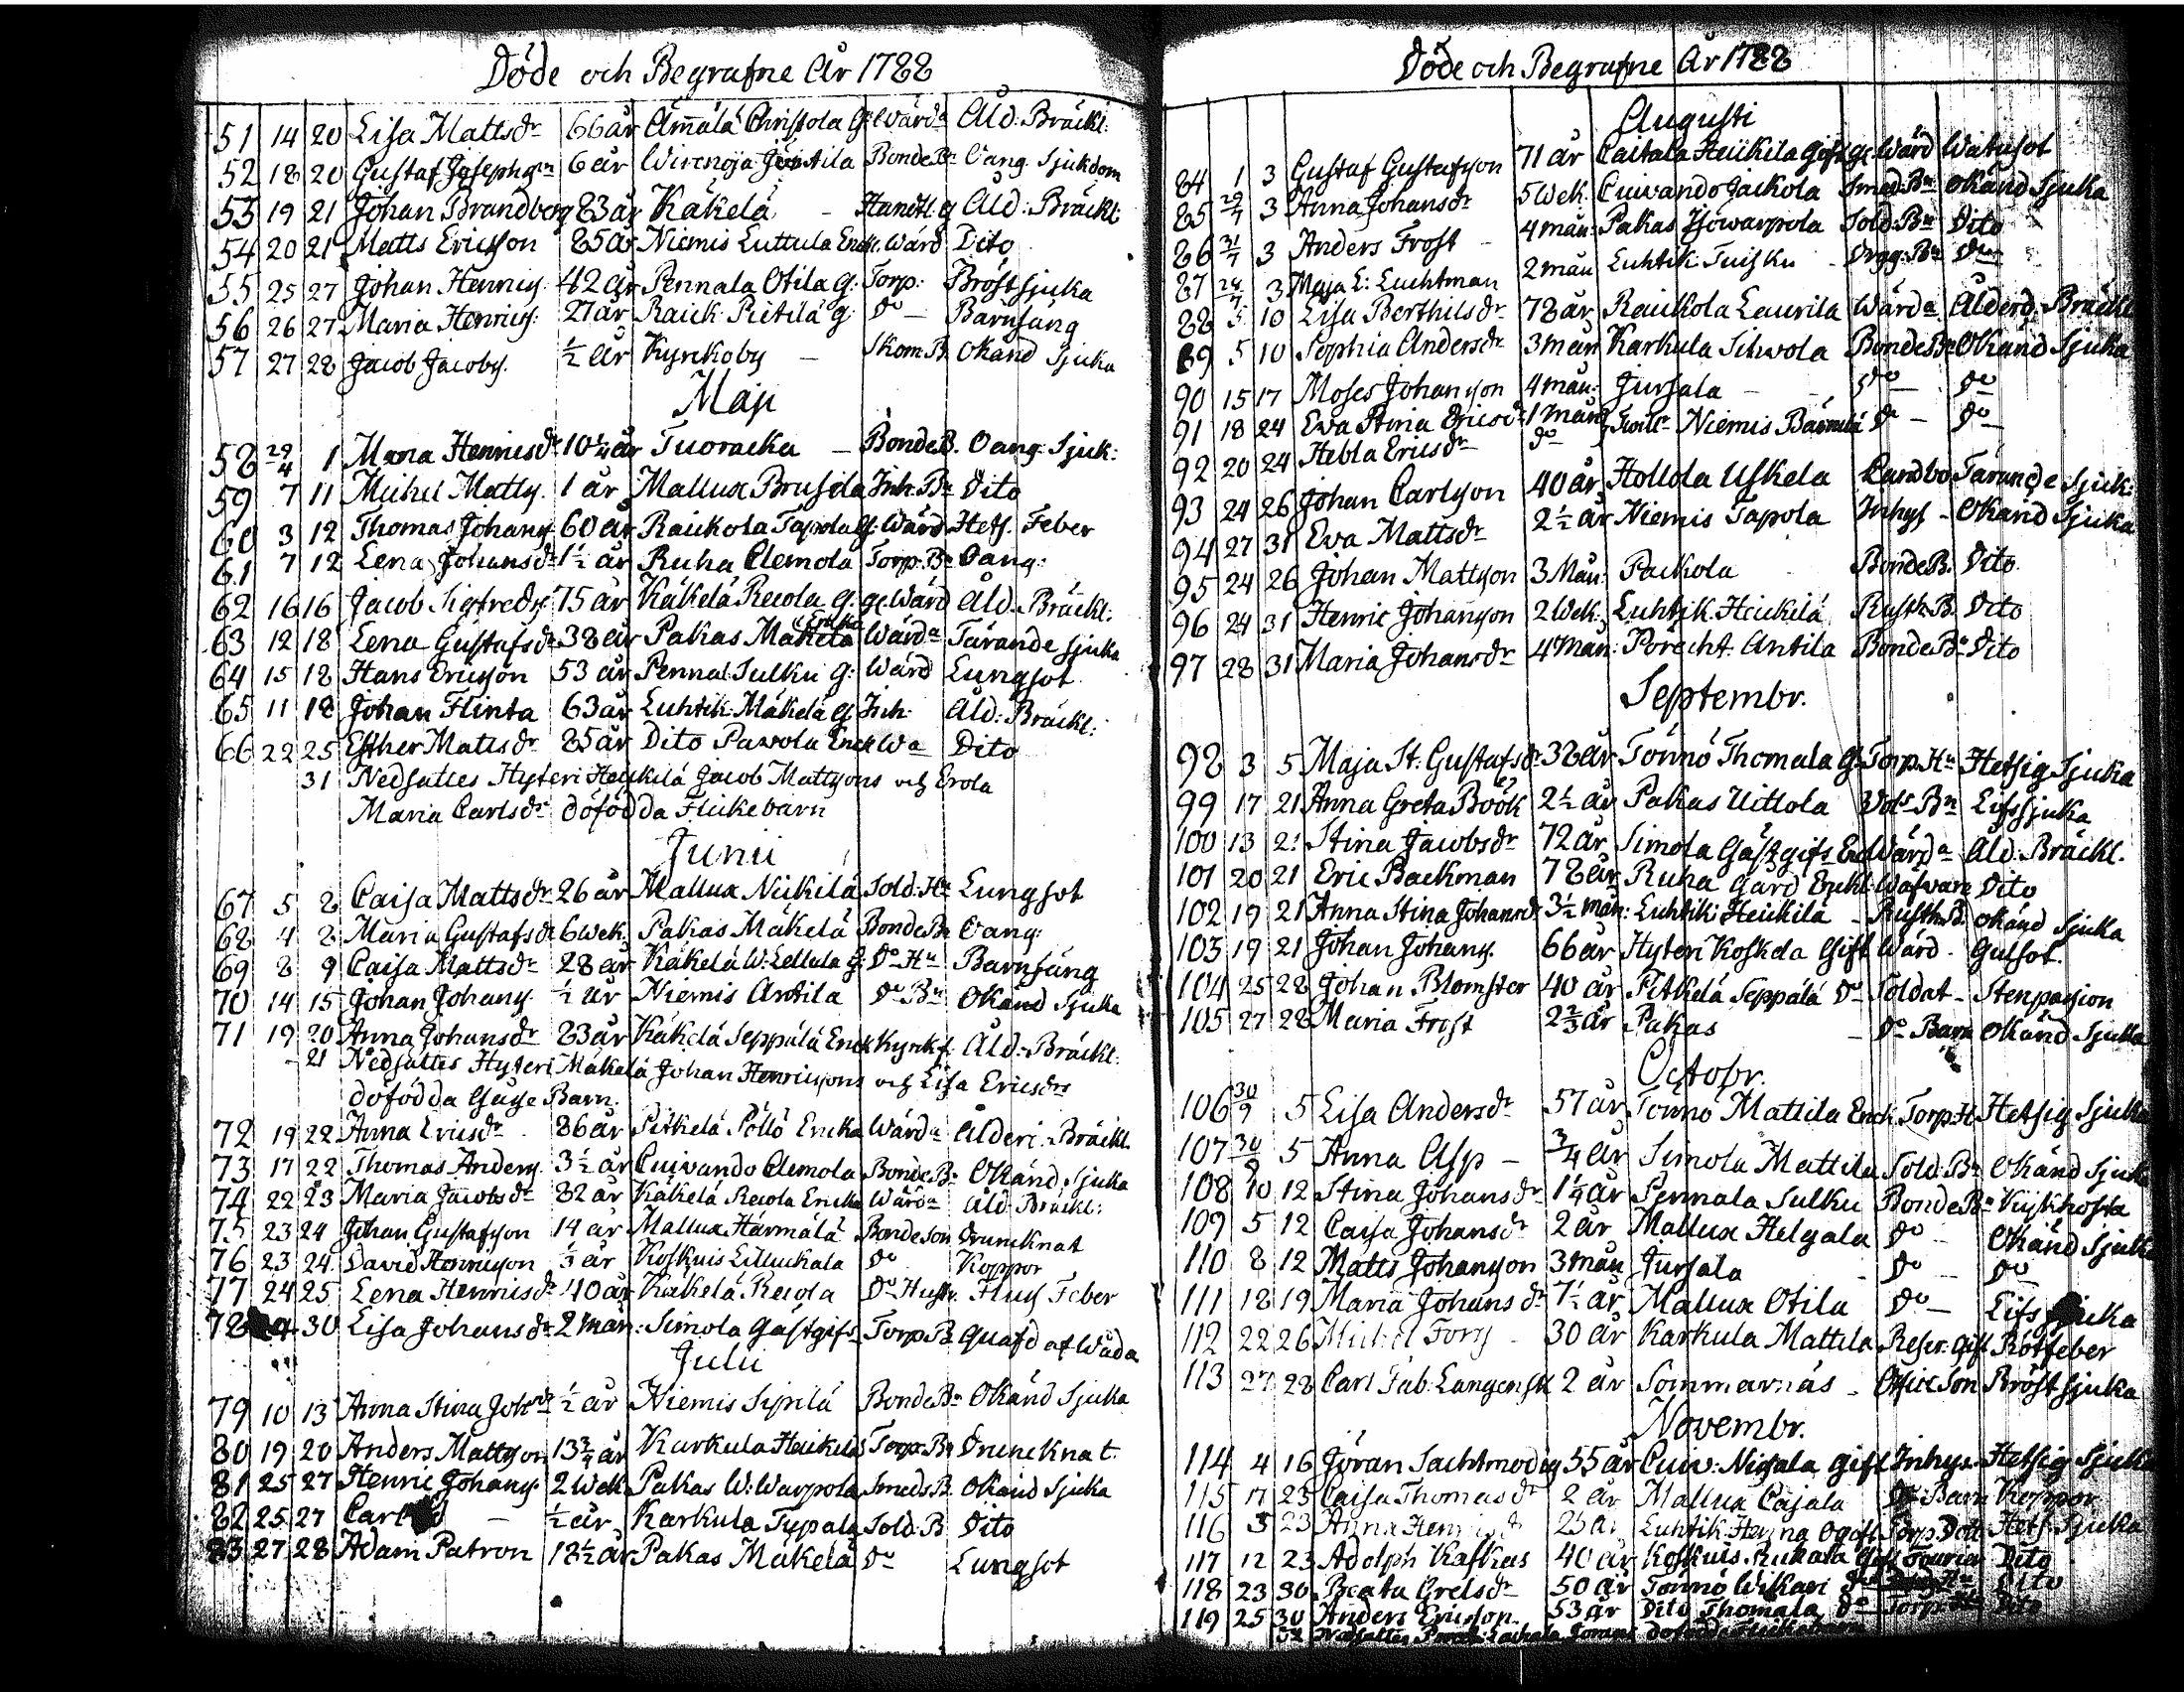 Döde och Begrafne År 1788
51 14 20 Lisa Mattsdr 66 år Ämälä Christola G: Wärda Åld: Bräckl:
52 18 20 Gustaf Josephsn 6 år Wirenoja Bonde Bn Oang. Sjukdom
53 19 21 Johan Brandberg 83 år Käkelä - Handtl. g Åld: Bräckl:
54 20 21 Matts Ericsson 85 år Niemis Luttula Enck. Wärd Dito
55 25 27 Johan Henrics. 42 år Pennala Otila g: Torp: Bröstsjuka
56 26 27 Maria Henrics: 27 år Raick. Pietilä g: Do - Barnsäng
57 27 28 Jacob Jacobs. ½ år Kyrckoby - Skom. B. Okänd Sjuka
Maji
58 29/4 1 Maria Henricsdr 10¼ år Tuoracka - Bonde B. Oang. Sjuk:
59 7 11 Michel Matts. 1 år Mallux Brusila Inh. Bn Dito
60 3 12 Thomas Johans. 60 år Raickola Tapola g. Wärd Hets. Feber
61 7 12 Lena Johansdr 1½ år Ruha Clemola Torp. Bn Oang:
62 16 16 Jacob Sigfreds. 75 år Käkelä Recola g. ge. Wärd Åld. Bräckl:
63 12 18 Lena Gustafsdr 38 år Pakas Mäkelä Encka Wärda Tärande sjuka
64 15 18 Hans Ericsson 53 år Pennal. Sulku g: Wärd Lungsot
65 11 18 Johan Flinta 63 år Luhtik. Mäkelä g. Inh. Åld: Bräckl:
66 22 25 Esther Mattsdr 85 år Dito Pavola Enck. Wa Dito
31 Nedsattes Hyteri Heickilä Jacob Mattsons och Erola
Maria Carlsdr dödfödda Flickebarn
Junii
67 5 8 Caisa Mattsdr 26 år Mallux Nickilä Sold: Hu Lungsot
68 4 8 Maria Gustafsdr 6 wek. Pakas Mäkelä Bonde Bn Oang:
69 8 9 Caisa Mattsdr 28 år Käkelä W: Lellula g. Do Hu Barnsäng
70 14 15 Johan Johans. ½ år Niemis Antila Do Bn Okänd Sjuka
71 19 20 Anna Johansdr 83 år Käkelä Seppälä Enck. Kyrkf. Åld: Bräckl:
- 21 Nedsattes Hyteri Mäkelä Johan Henricssons och Lisa Ericsdrs
dödfödda Gåsse Barn.
72 19 22 Anna Ericsdr 86 år Pitkelä Pöllö Encka Wärda Ålderd. Bräckl.
73 17 22 Thomas Anders. 3½ år Cuivando Clemola Bonde Bn Okänd Sjuka
74 22 23 Maria Jacobsdr 82 år Käkelä Recola Encka Wärda Åld. Bräckl:
75 23 24 Johan Gustafsson 14 år Mallux Härmälä Bonde Son Druncknat
76 23 24 David Henricsson ⅓ år Koskuis Lilluckala Do Koppor
77 24 25 Lena Henricsdr 40 år Käkelä Recola Do Hustr. Fluss Feber
78 30 Lisa Johansdr 2 mån: Simola Gästgifs. Torp B. Quafd af Wåda
Julii
79 10 13 Anna Stina Johsdr ½ år Niemis Sipilä Bonde Bn Okänd Sjuka
80 19 20 Anders Mattsson 13¾ år Karkula Heickilä Torp. Bn Druncknat
81 25 27 Henric Johans. 2 Wek. Pakas W: Warpola Smeds B. Okänd Sjuka
82 25 27 Carl - ½ år Karkula Typala Sold: B Dito
83 27 28 Adam Patron 18½ år Pakas Mäkelä Do Lungsot
Döde och Begrafne År 1788
Augusti
84 1 3 Gustaf Gustafsson 71 år Castala Heickilä Gift ge. Wärd Watusot
85 29/7 3 Anna Johansdr 5 Wek. Cuivando Jäckola Smed: Bn Okänd Sjuka
86 31/7 3 Anders Frost - 4 mån: Pakas Isowarpola Sold: Bn Dito
87 3 Maja L: Luchtman 2 mån Luhtik. Tuisku - Drag: Bn Do
88 5 10 Lisa Berthilsdr 78 år Raickola Laurila Wärda Ålderd. Bräckl
89 5 10 Sophia Andersdr 3 mån Karkula Sihvola Bonde Bn Okänd Sjuka
90 15 17 Moses Johansson 4 mån: Jursala - Do Do
91 18 24 Eva Stina Ericsdr 1 mån Twill. Niemis Do - Do
92 20 24 Hebla Ericsdr Do
93 24 26 Johan Carlsson 40 år Hollola Uskela Landbo Tärande Sjuk:
94 27 31 Eva Mattsdr 2½ år Niemis Tapola Inhys - Okänd Sjuka
95 24 26 Johan Mattsson 3 Mån: Paickola Bonde B. Dito
96 24 31 Henric Johansson 2 Wek. Luhtik. Heickilä Rusth. B. Dito
97 28 31 Maria Johansdr 4 mån: Porecht. Antila Bonde Bn Dito
Septembr.
98 3 5 Maja St: Gustafsdr 38 år Tönnö Thomala g. Torp. Hu Hetsig Sjuka
99 17 21 Anna Greta Böök 2½ år Pakas Uittola Vols Bn Lifssjuka
100 13 21 Stina Jacobsdr 72 år Simola Gästgifs. Enck Wärda Åld. Bräckl.
101 20 21 Eric Backman 78 år Ruha Gård Enckl. Wäfvare Dito
102 19 21 Anna Stina Johansdr 3½ mån: Luhtik: Heickilä - Rusth. B. Okänd Sjuka
103 19 21 Johan Johans. 66 år Hyteri Koskela Gift Wärd - Gulsot.
104 25 28 Johan Blomster 40 år Pitkelä Seppälä Do Soldat - Stenpassion
105 27 28 Maria Frost 2⅔ år Pakas - Do Barn Okänd Sjuka
Octobr.
106 30/9 5 Lisa Andersdr 57 år Tönnö Mattila Enck. Torp. H. Hetsig Sjuka
107 30/9 5 Anna Asp - ¾ år Simola Mattila Sold. Bn Okänd Sjuk
108 10 12 Stina Johansdr 1¼ år Pennala Sulku Bonde Bn Kickhosta
109 5 12 Caisa Johansdr 2 år Mallux Helgala Do - Okänd Sjuka
110 8 12 Matts Johansson 3 mån Jursala - Do - Do
111 18 19 Maria Johansdr 7½ år Mallux Otila Do - Lifssjuka
112 22 26 Michel Fors - 30 år Karkula Mattila Reser. Gift Rötfeber
113 27 28 Carl Fab: Langensk 2 år Sommarnäs - Offic Son Bröstsjuka
Novembr.
114 4 16 Jöran Sachtmodig 55 år Cuiv: Nissala gift Inhys. Hetsig Sjuka
115 17 23 Caisa Thomasdr 2 år Mallux Cajala Do Barn Koppor
116 3 23 Anna Henricsdr 25 år Luhtik. Ogift Torp. Dott Hets. Sjuka
117 12 23 Adolph Kaskas 40 år Koskuis. Ruckala Gift Fourier Dito
118 23 30 Beata Grelsdr 50 år Tönnö Wikari Do Dito
119 25 30 Anders Ericsson 53 år Dito Thomala Do Torp. Dito